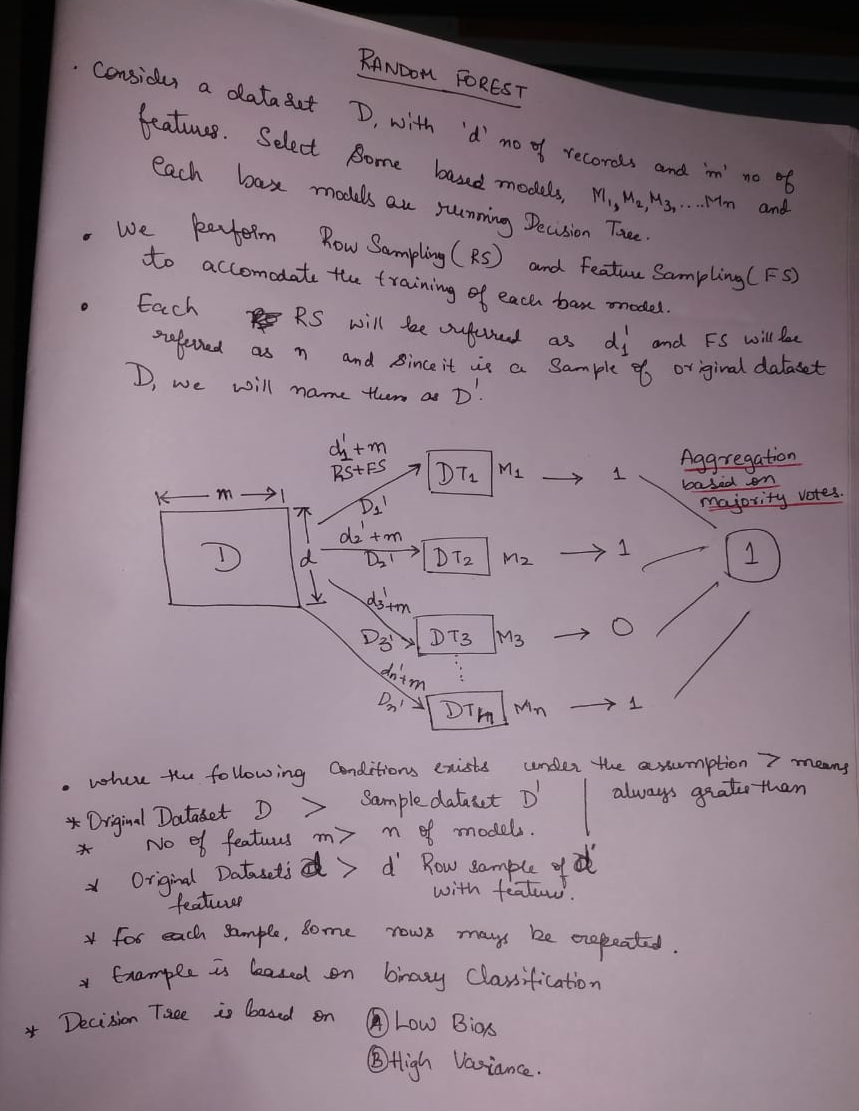 RANDOM FOREST
• Consider a dataset D, with 'd' no of records and 'm' no of
features. Select Some based models, M1, M2, M3, ....Mn and
each base models are running Decision Tree.
• We perform Row Sampling (RS) and Feature Sampling (FS)
to accomodate the training of each base model.
• Each RS will be referred as d1' and FS will be
referred as n and since it is a Sample of original dataset
D, we will name them as D'.
d1'+m
RS+FS
DT1 M1 → 1
Aggregation
based on
majority votes.
m
D1'
D
d
d2'+m
D2'
DT2 M2 → 1
1
d3'+m
D3'
DT3 M3 → 0
dn'+m
Dn'
DTn Mn → 1
• where the following Conditions exists under the assumption > means
always grater than
* Original Dataset D > Sample dataset D'
* No of features m > n of models.
* Original Datasets d > d' Row sample of d'
features with feature.
* For each sample, Some rows mays be repeated.
* Example is based on binary Classification
* Decision Tree is based on (A) Low Bias
(B) High Variance.